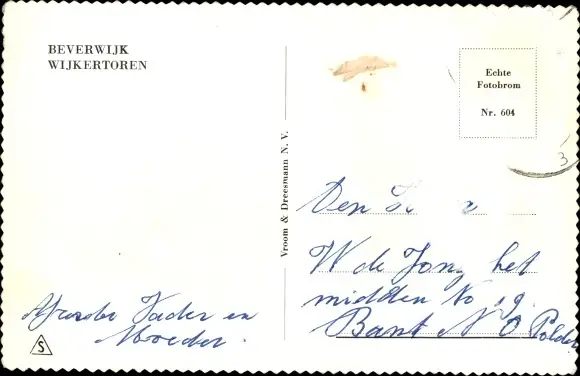 BEVERWIJK
WIJKERTOREN
Echte
Fotobrom
Nr. 604
Vroom & Dreesmann N. V.
Den
W de Jong het
midden No 19.
Bant N O Polder
Vader en
Moeder.
S
3